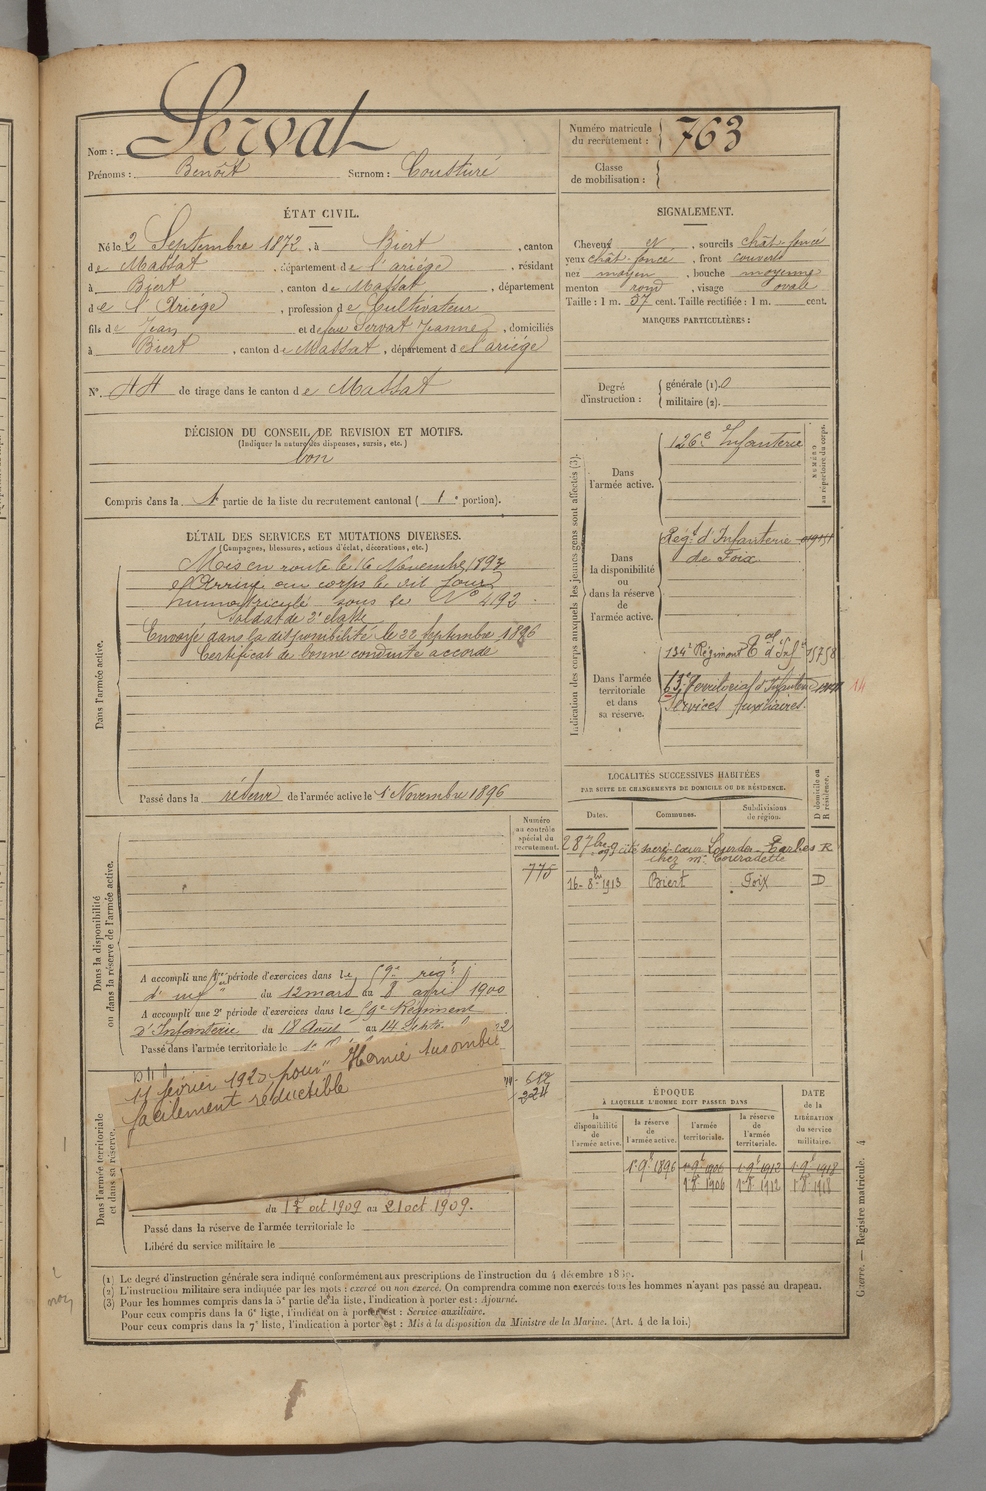 Nom : Servat
Prénoms : Benoît Surnom : Cousturé
Numéro matricule du recrutement : 763
Classe de mobilisation :
ÉTAT CIVIL.
Né le 2 Septembre 1872, à Biert, canton
de Massat, département de l'ariége, résidant
à Biert, canton de Massat, département
de l'Ariége, profession de Cultivateur
fils de Jean et de feue Servat Jeanne, domiciliés
à Biert, canton de Massat, département de l'ariége
N° 44 de tirage dans le canton de Massat
SIGNALEMENT.
Cheveux et, sourcils chât. foncé
yeux chât. foncé, front couvert
nez moyen, bouche moyenne
menton rond, visage ovale
Taille : 1 m. 57 cent. Taille rectifiée : 1 m. cent.
MARQUES PARTICULIÈRES :
Degré d'instruction :
générale (1). 0
militaire (2).
DÉCISION DU CONSEIL DE REVISION ET MOTIFS.
(Indiquer la nature des dispenses, sursis, etc.)
bon
Compris dans la 1e partie de la liste du recrutement cantonal ( 1e portion).
DÉTAIL DES SERVICES ET MUTATIONS DIVERSES.
(Campagnes, blessures, actions d'éclat, décorations, etc.)
Dans l'armée active.
Mis en route le 16 Novembre 1893
et Arrivé au corps le dit jour
Immatriculé sous le N° 4192.
Soldat de 2e classe
Envoyé dans la disponibilité le 22 Septembre 1896
Certificat de bonne conduite accordé
Passé dans la réserve de l'armée active le 1er Novembre 1896
Indication des corps auxquels les jeunes gens sont affectés (3).
NUMÉRO au répertoire du corps.
Dans l'armée active.
126e Infanterie
Dans la disponibilité ou dans la réserve de l'armée active.
Régt d'Infanterie
de Foix
Dans l'armée territoriale et dans sa réserve.
134e Régiment Tal d'Infie 15758
63e Territorial d'Infanterie
Services Auxiliaires.
LOCALITÉS SUCCESSIVES HABITÉES
PAR SUITE DE CHANGEMENTS DE DOMICILE OU DE RÉSIDENCE.
Dates. Communes. Subdivisions de région. D domicile ou R résidence.
28 7bre 09 cité sacré-cœur Lourdes Tarbes R
chez Mr Couradette
16 8bre 1913 Biert Foix D
Numéro au contrôle spécial du recrutement.
775
Dans la disponibilité ou dans la réserve de l'armée active.
A accompli une 1re période d'exercices dans le 59e régt
d'inf. du 12 mars au 8 avril 1900
A accompli une 2e période d'exercices dans le 59e Régiment
d'Infanterie du 18 Août au 14 Sept.
Passé dans l'armée territoriale le
Dans l'armée territoriale et dans sa réserve.
11 février 1920 pour Hernie
facilement réductible
612
224
du 13 oct 1909 au 21 oct 1909.
Passé dans la réserve de l'armée territoriale le
Libéré du service militaire le
ÉPOQUE
À LAQUELLE L'HOMME DOIT PASSER DANS
la disponibilité de l'armée active. la réserve de l'armée active. l'armée territoriale. la réserve de l'armée territoriale.
DATE de la LIBÉRATION du service militaire.
1er 9e 1896 1er 9e 1906 1er 9e 1912 1er 9e 1918
1er 8e 1906 1er 8e 1912 1er 8e 1918
(1) Le degré d'instruction générale sera indiqué conformément aux prescriptions de l'instruction du 4 décembre 1889.
(2) L'instruction militaire sera indiquée par les mots : exercé ou non exercé. On comprendra comme non exercés tous les hommes n'ayant pas passé au drapeau.
(3) Pour les hommes compris dans la 5e partie de la liste, l'indication à porter est : Ajourné.
Pour ceux compris dans la 6e liste, l'indication à porter est : Service auxiliaire.
Pour ceux compris dans la 7e liste, l'indication à porter est : Mis à la disposition du Ministre de la Marine. (Art. 4 de la loi.)
Guerre. — Registre matricule. 4